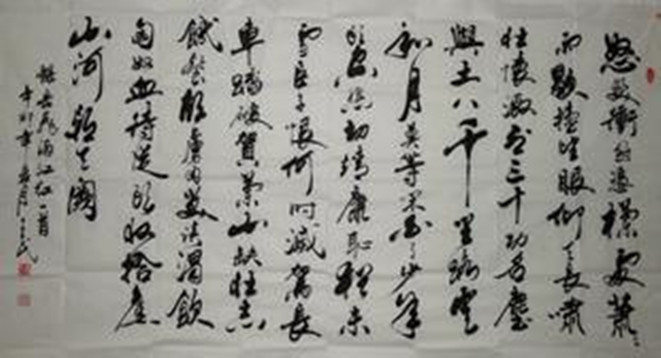 怒發衝冠憑欄處蕭々
雨歇擡望眼仰天長嘯
壯懷激烈三十功名塵
與土八千里路雲
和月莫等閑白了少年
頭空悲切靖康恥猶未
雪臣子恨何時滅駕長
車踏破賀蘭山缺壯志
饑餐胡虜肉笑談渴飲
匈奴血待從頭收拾舊
山河朝天闕
錄岳飛滿江紅一首
辛卯年